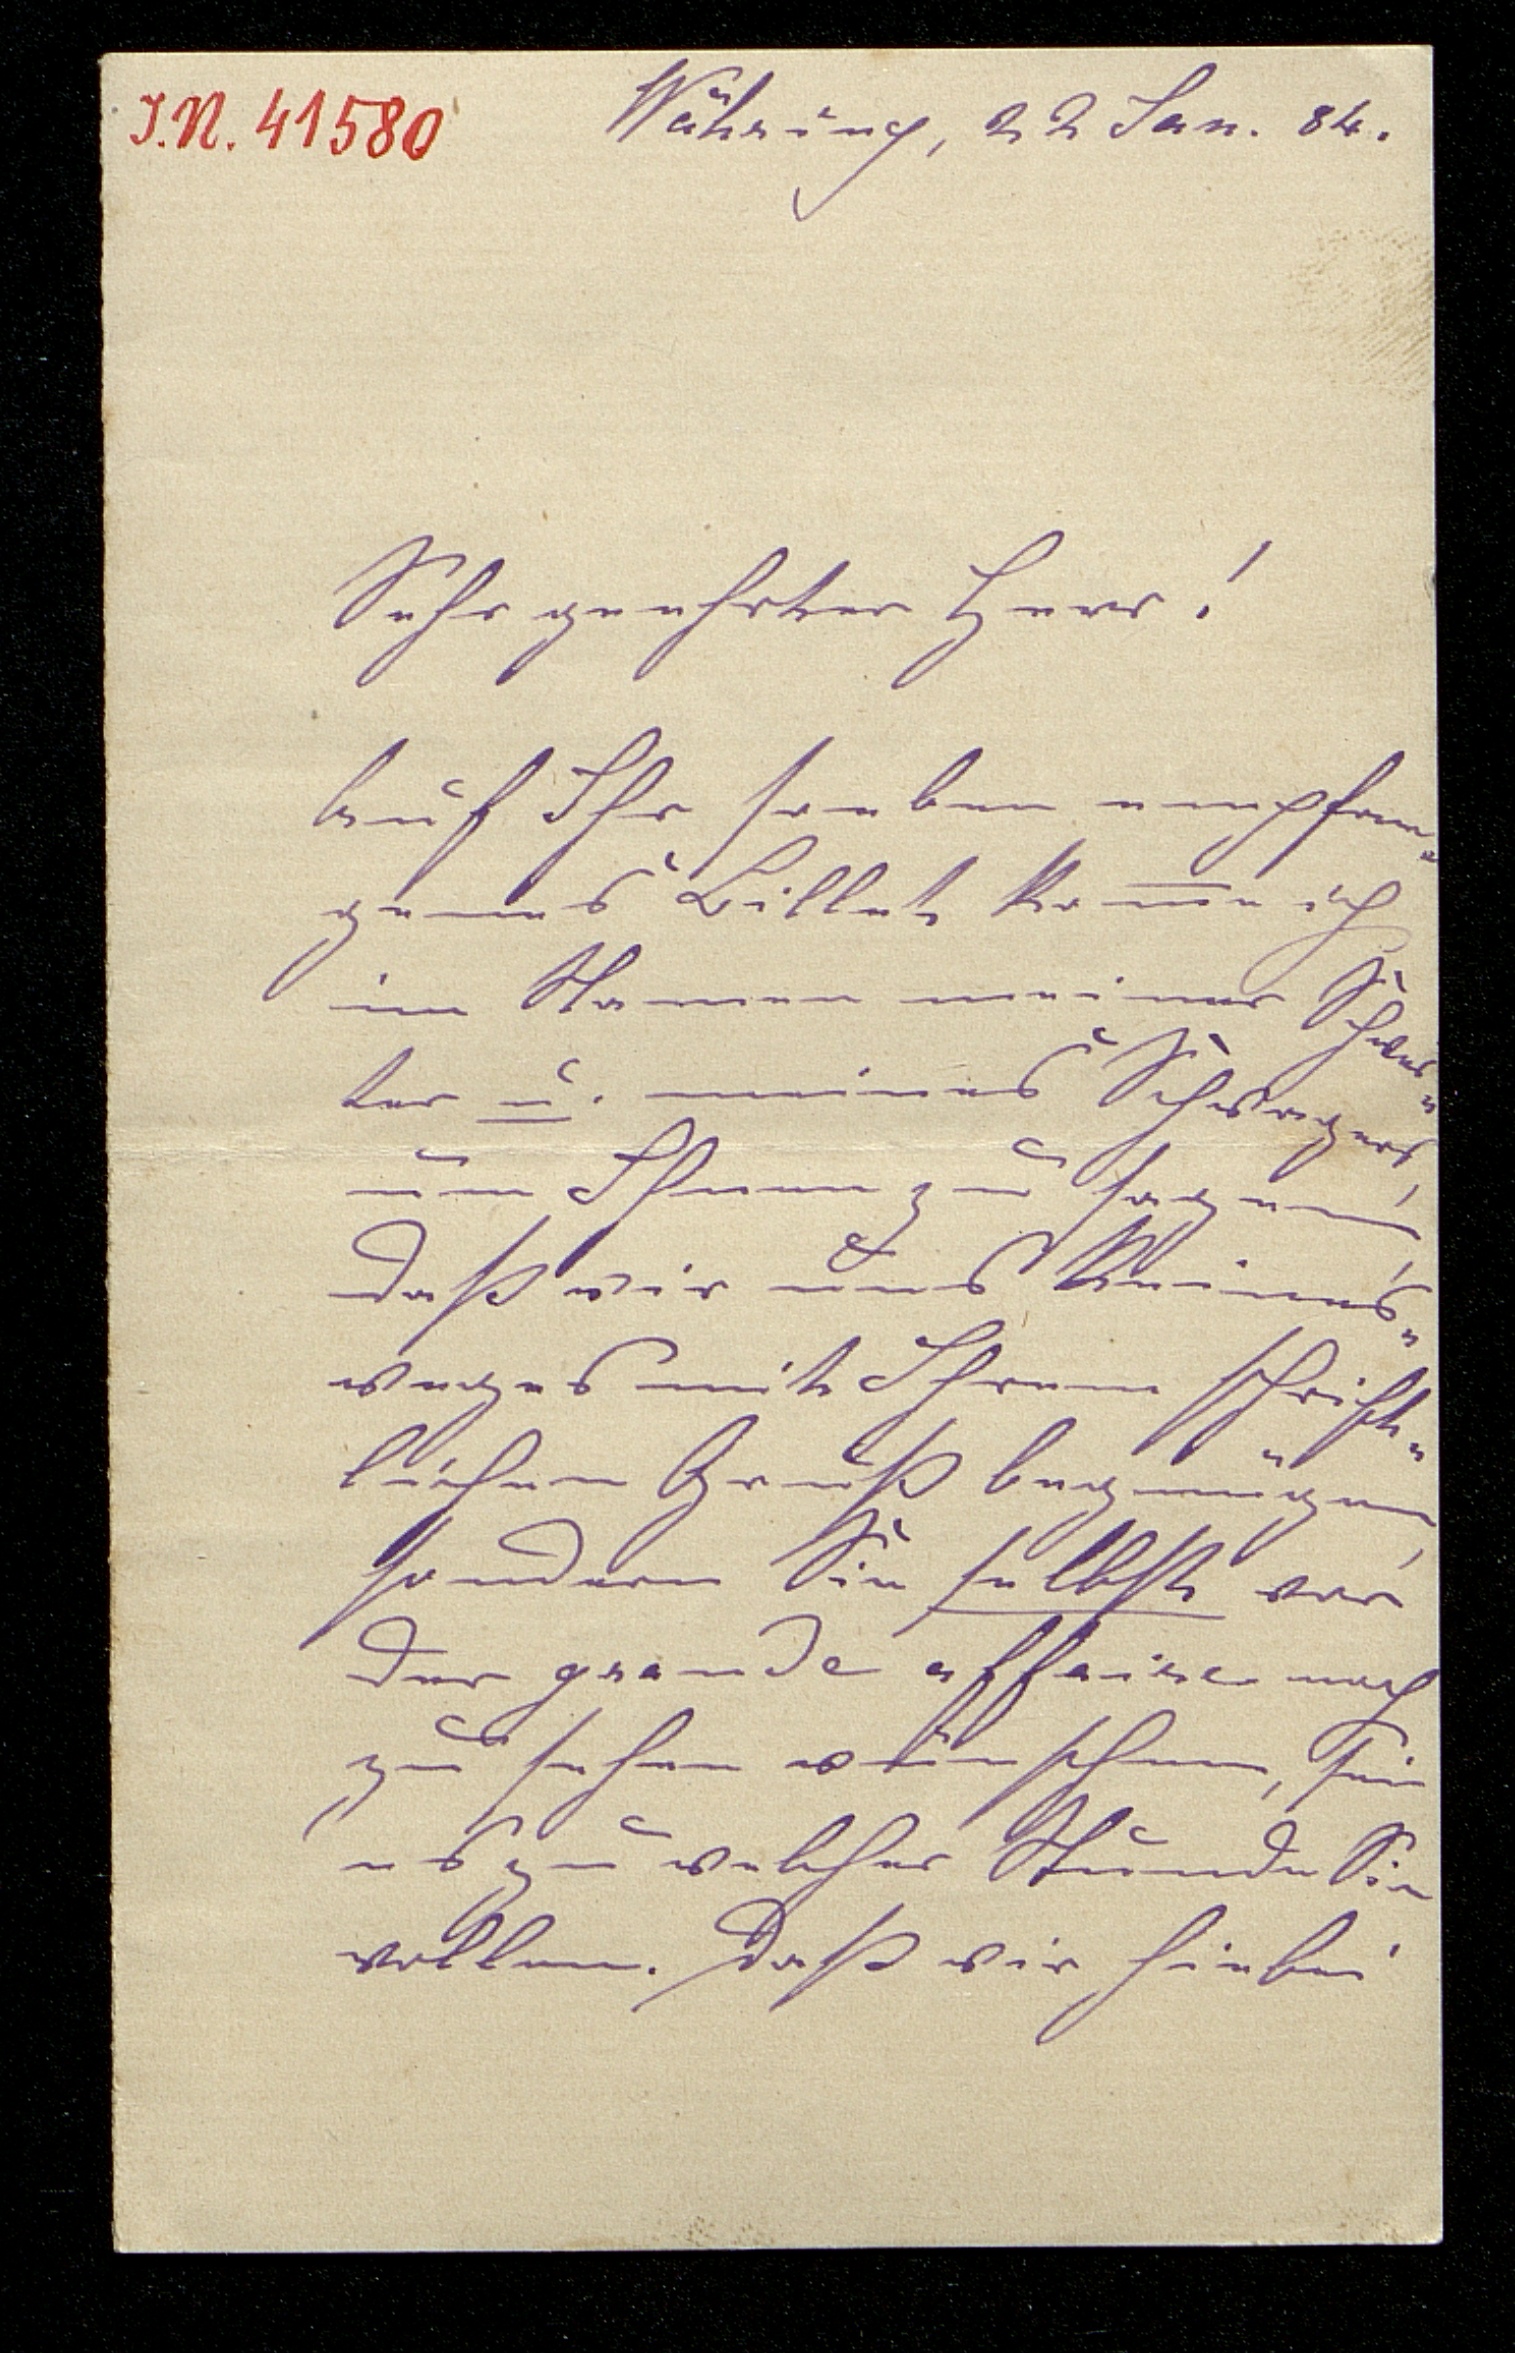 J.N. 41580
Währing, 22 Jan. 84.
Sehr geehrter Herr!
Auf Ihr soeben empfan-
genes Billet komme ich
im Namen meiner Schwes-
ter u. meines Schwagers,
um Ihnen zu sagen,
daß wir uns keines-
weges mit Ihrem schrift-
lichen Gruß begnügen,
sondern Sie selbst vor
der grande affaire noch
zu sehen wünschen, sei
es zu welcher Stunde Sie
wollen. Daß wir hiebei